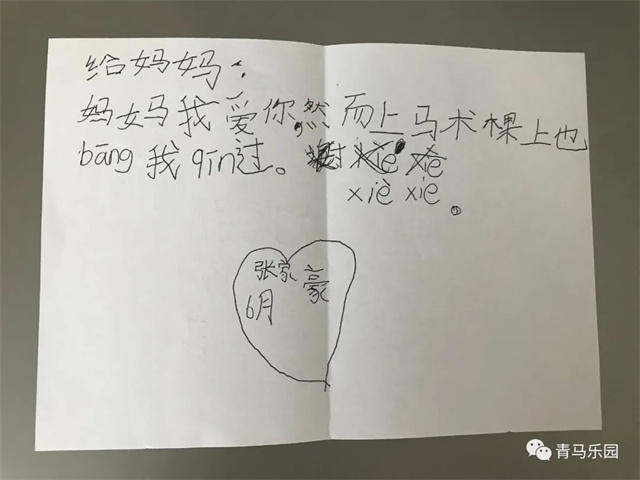 给妈妈：
妈妈我爱你然而上马术棵上也
bāng我qīn过。谢
xiè xie。
张家豪
6月
青马乐园